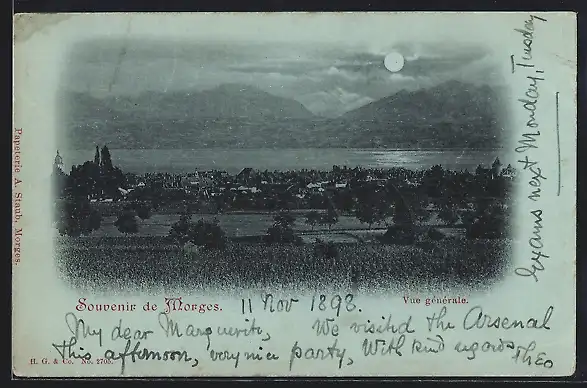 Exams next Monday, Tuesday
Papeterie A. Staub, Morges.
Souvenir de Morges.
11 Nov 1898.
Vue générale.
My dear Marguerite, We visited the Arsenal
this afternoon, very nice party, With kind regards Theo
H. G. & Co. No. 2705.